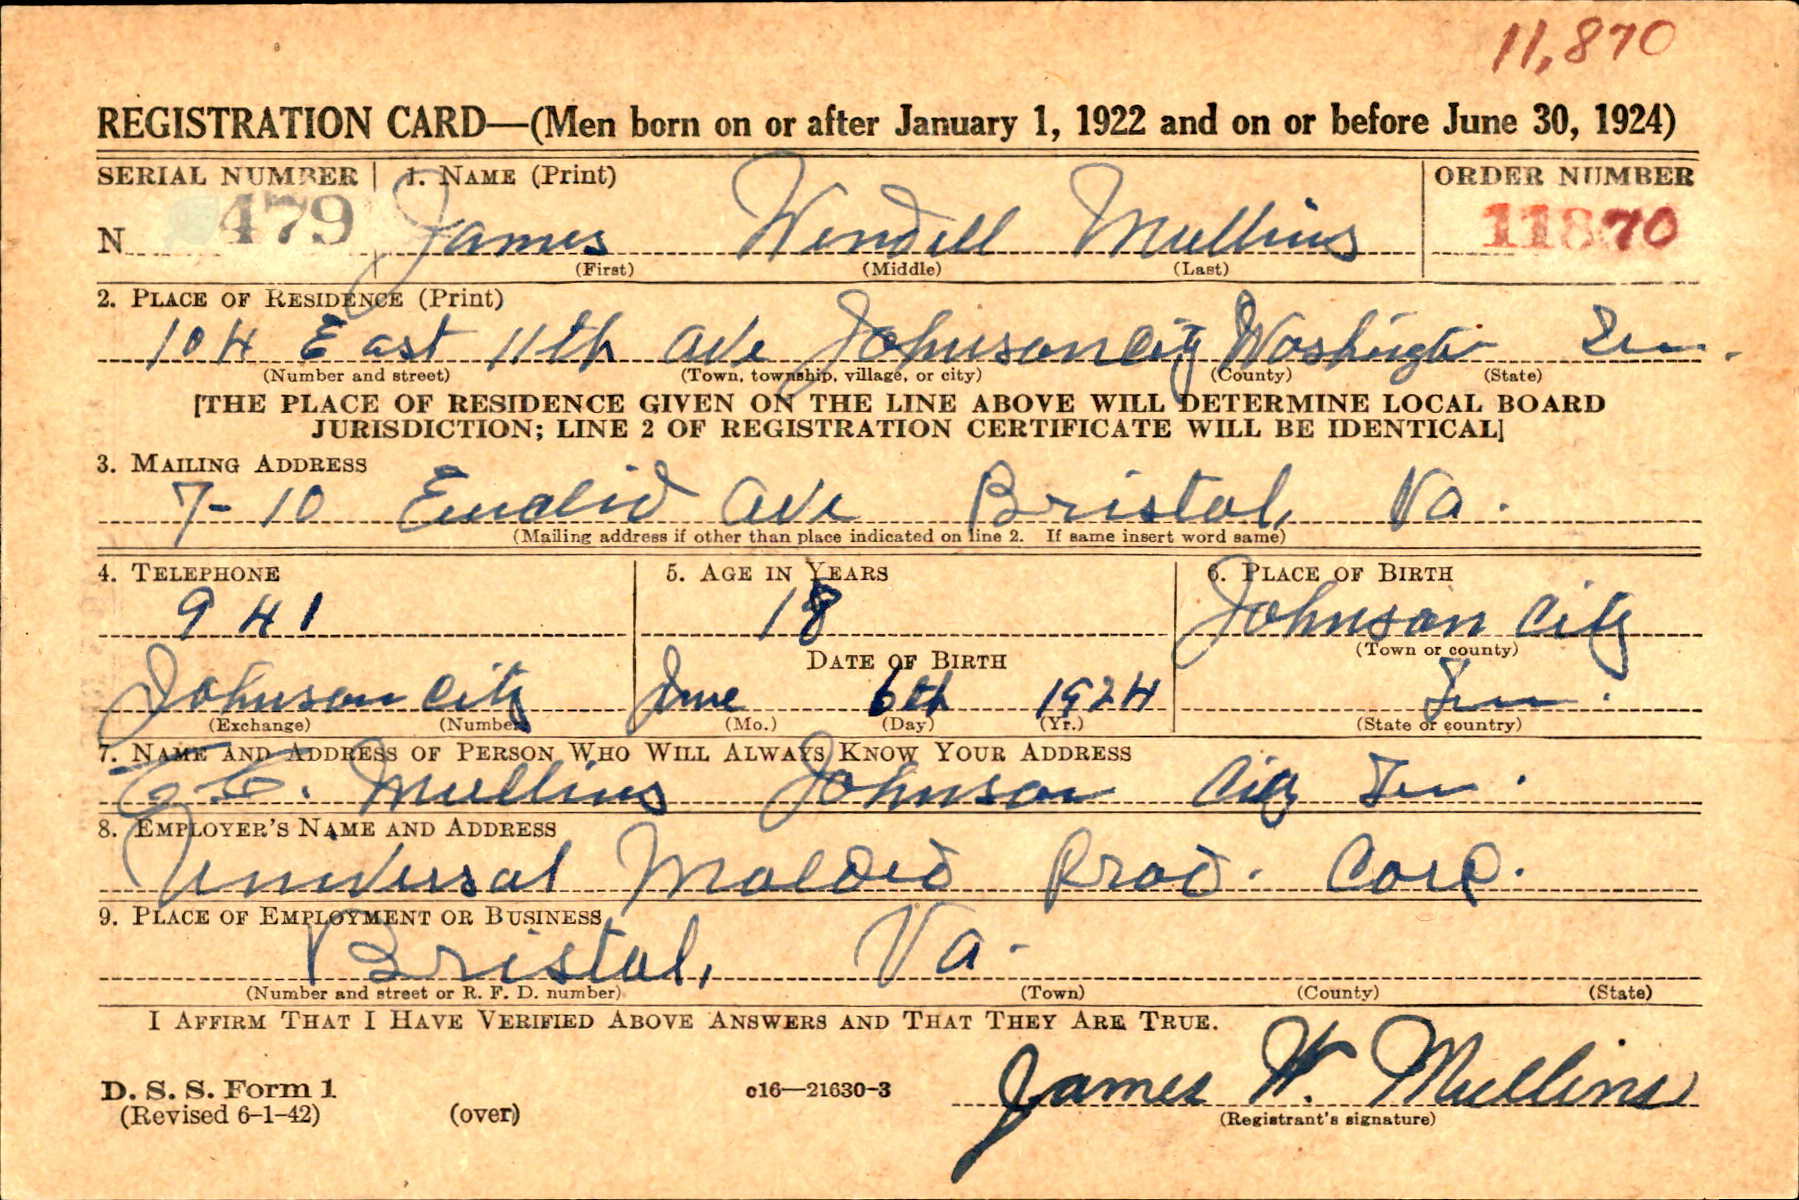 11,870
REGISTRATION CARD—(Men born on or after January 1, 1922 and on or before June 30, 1924)
SERIAL NUMBER 1. NAME (Print) ORDER NUMBER
N 479 James Wendell Mullins 11870
(First) (Middle) (Last)
2. PLACE OF RESIDENCE (Print)
104 East 11th Ave Johnson City Washington Tenn.
(Number and street) (Town, township, village, or city) (County) (State)
[THE PLACE OF RESIDENCE GIVEN ON THE LINE ABOVE WILL DETERMINE LOCAL BOARD
JURISDICTION; LINE 2 OF REGISTRATION CERTIFICATE WILL BE IDENTICAL]
3. MAILING ADDRESS
7-10 Euclid Ave Bristol, Va.
(Mailing address if other than place indicated on line 2. If same insert word same)
4. TELEPHONE 5. AGE IN YEARS 6. PLACE OF BIRTH
941 18 Johnson City
DATE OF BIRTH (Town or county)
Johnson City June 6th 1924 Tenn.
(Exchange) (Number) (Mo.) (Day) (Yr.) (State or country)
7. NAME AND ADDRESS OF PERSON WHO WILL ALWAYS KNOW YOUR ADDRESS
Mullins Johnson City Tenn.
8. EMPLOYER'S NAME AND ADDRESS
Universal Molded Prod. Corp.
9. PLACE OF EMPLOYMENT OR BUSINESS
Bristol, Va.
(Number and street or R. F. D. number) (Town) (County) (State)
I AFFIRM THAT I HAVE VERIFIED ABOVE ANSWERS AND THAT THEY ARE TRUE.
D. S. S. Form 1 c16—21630-3 James W. Mullins
(Revised 6-1-42) (over) (Registrant's signature)